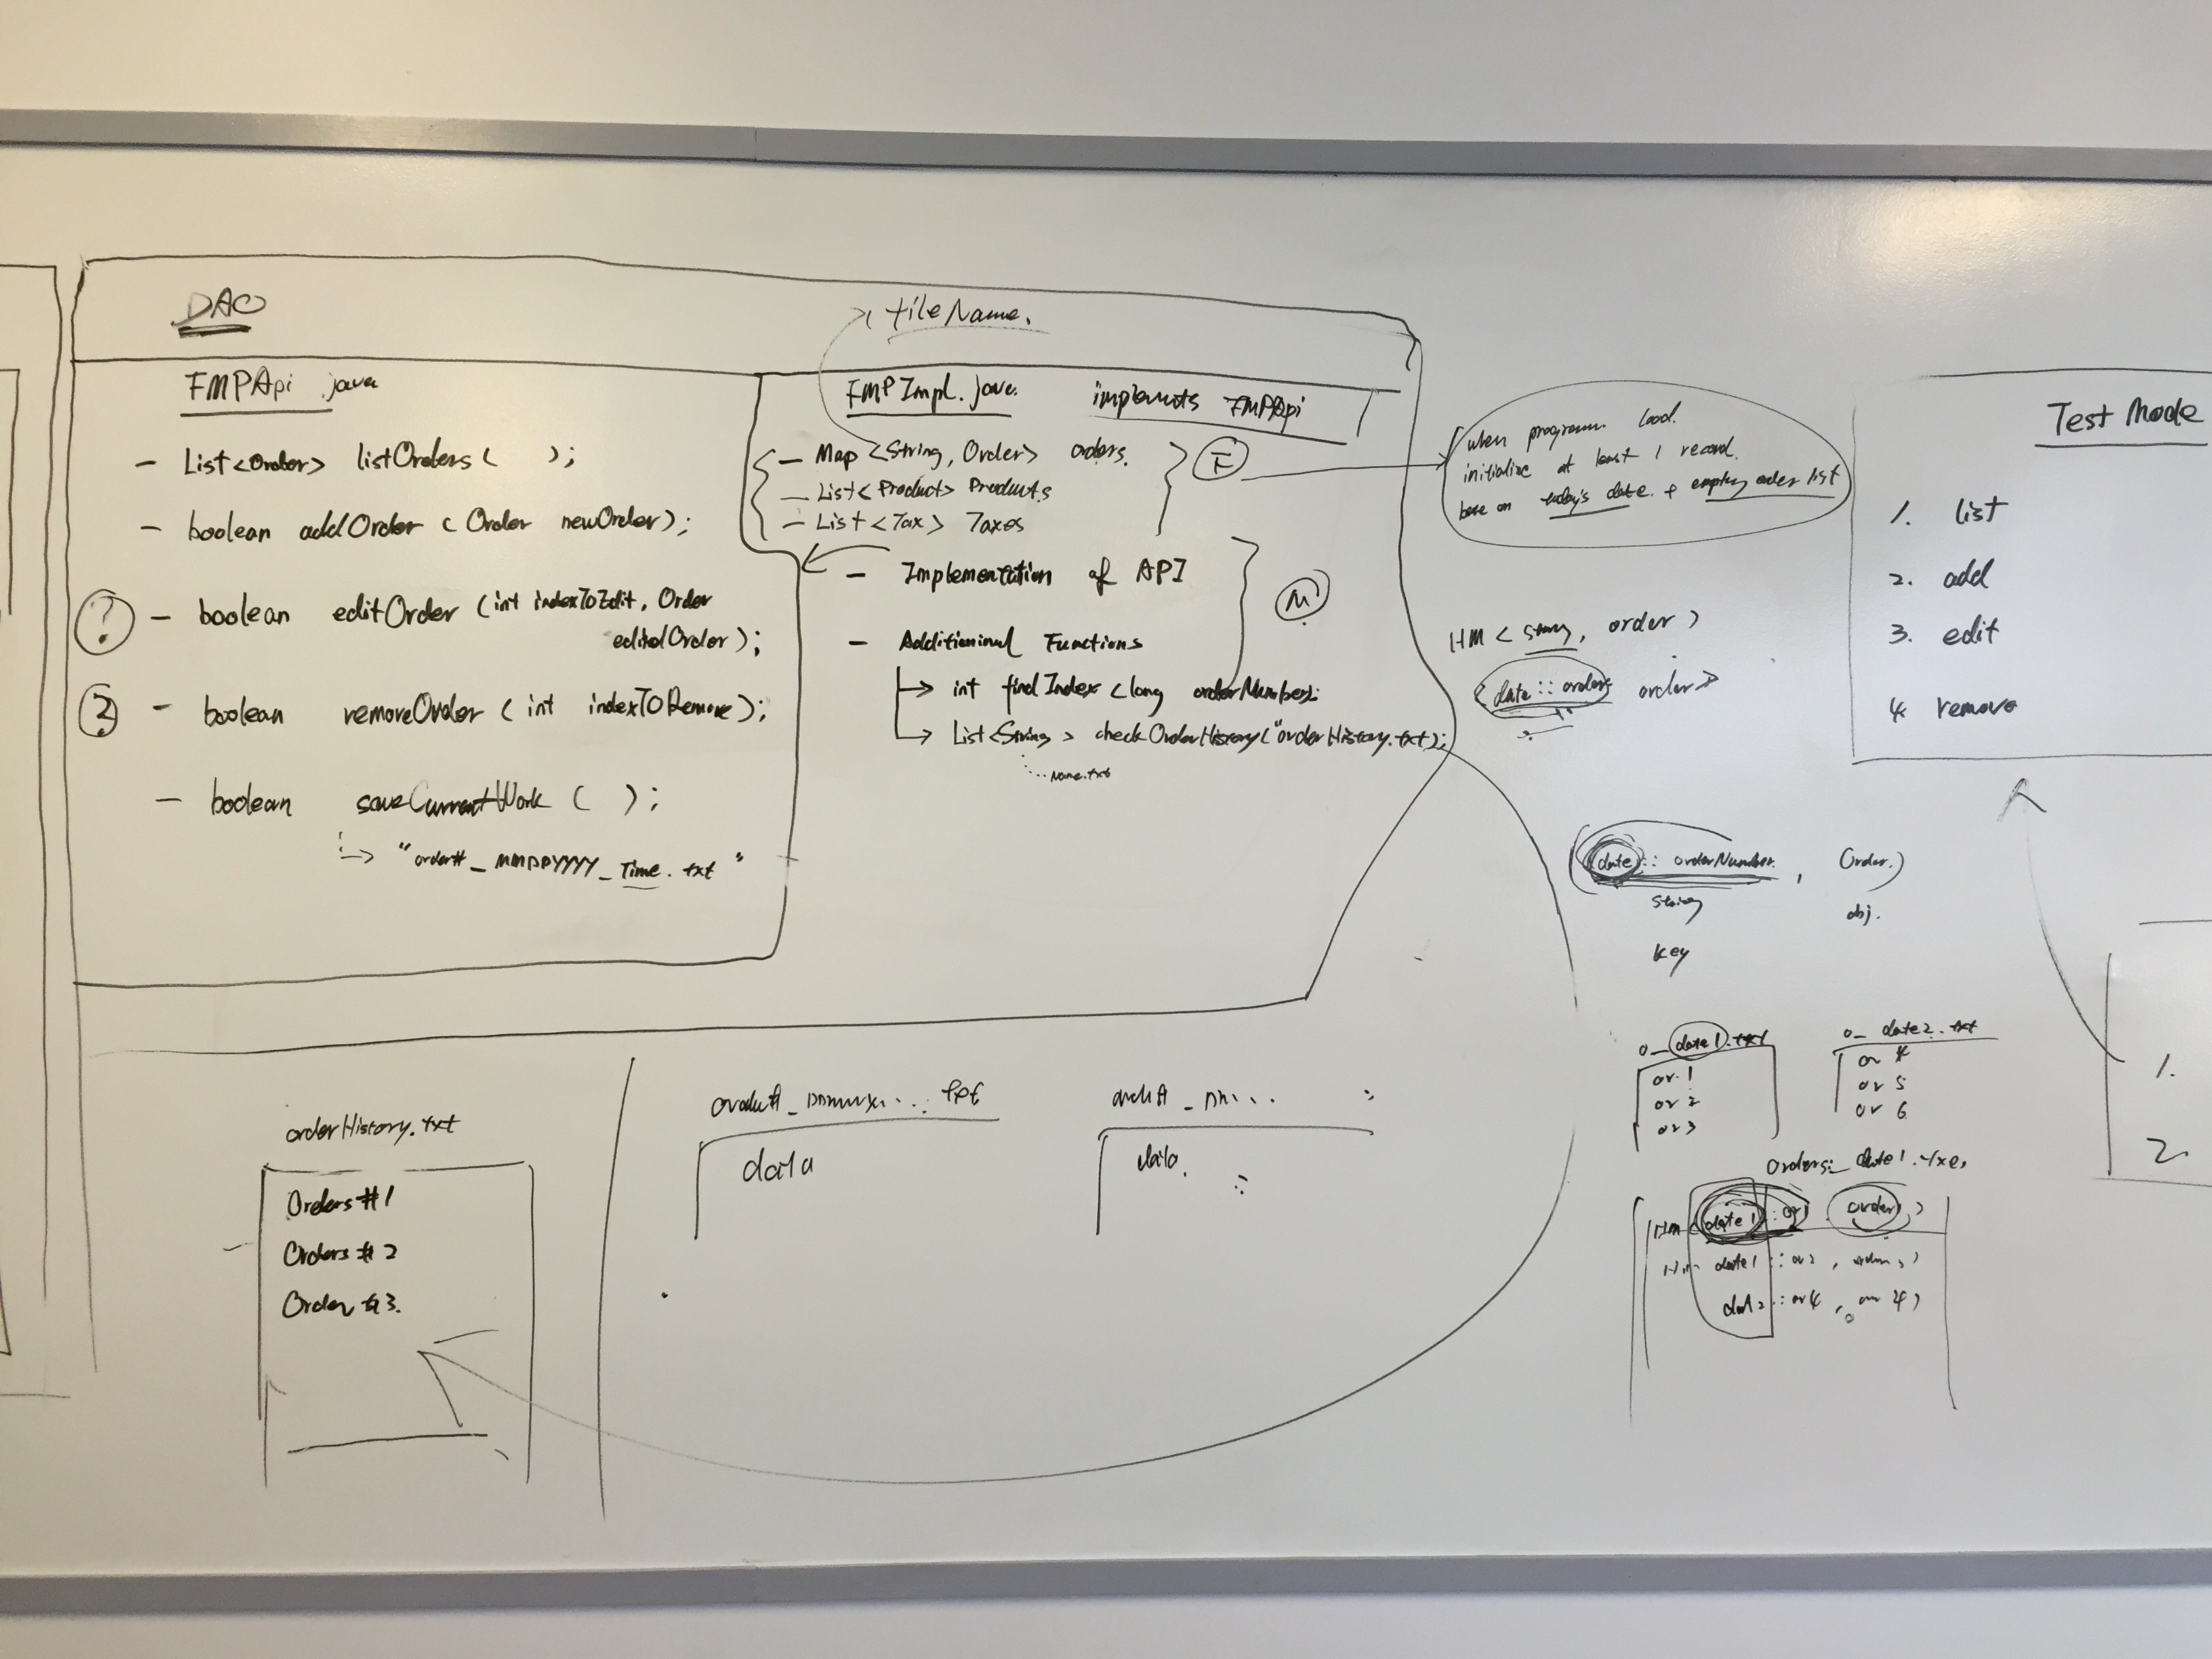 DAO
fileName.
FMPApi .java
- List<Order> listOrders ( );
- boolean addOrder ( Order newOrder);
? - boolean editOrder (int indexToEdit, Order
editedOrder);
? - boolean removeOrder ( int indexToRemove);
- boolean saveCurrentWork ( );
"order#_MMDDYYYY_Time.txt"
FMPImpl.java. implements FMPApi
- Map <String, Order> orders.
- List<Product> Products
- List <Tax> Taxes
F
- Implementation of API
M
- Additioninal Functions
int findIndex (long orderNumber);
List<String> checkOrderHistory("orderHistory.txt);
Name.txt
when program load.
initialize at least 1 record.
base on today's date. + empty order list
HM < String, order >
<date :: order, order>
Test Mode
1. list
2. add
3. edit
4. remove
(date :: orderNumber. , Order.)
String obj.
key
o_date1.txt
or 1
or 2
or 3
o_ date2.txt
or 4
or 5
or 6
orders_ date1.txt
Hm (date1 :: or1 order1 )
Hm date1 :: or2 ,
date2 :: or4 , or 4)
1.
2.
orderHistory.txt
Orders #1
Orders #2
Order #3.
data
data.